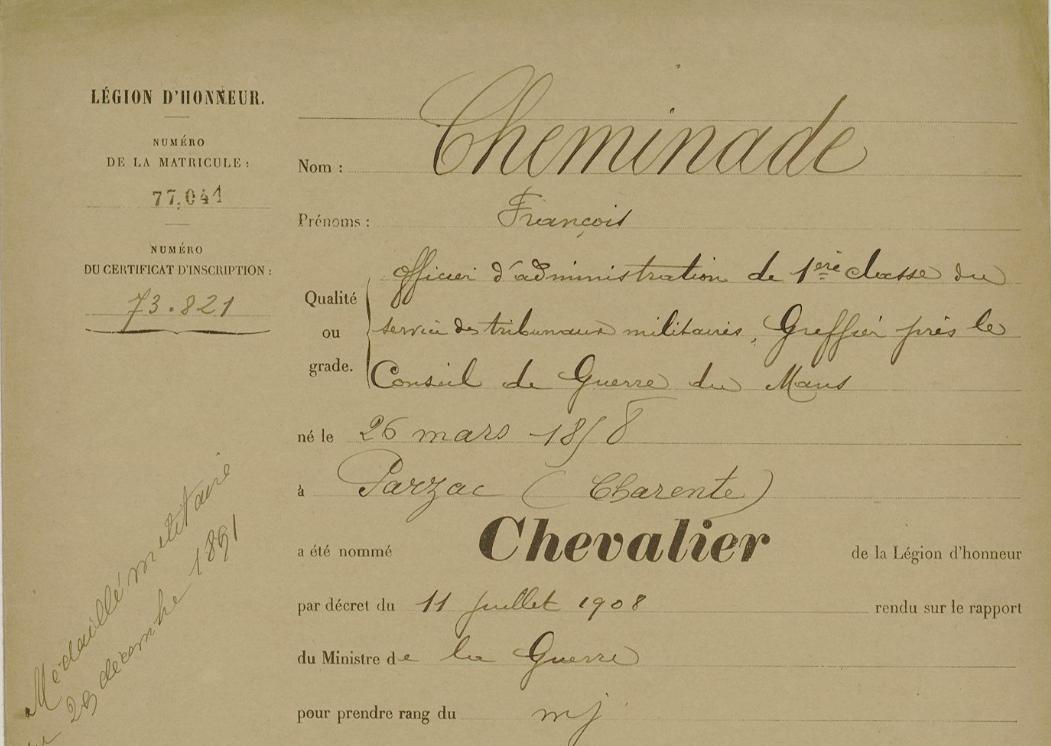 LÉGION D'HONNEUR.
NUMÉRO
DE LA MATRICULE :
77.041
NUMÉRO
DU CERTIFICAT D'INSCRIPTION :
73.821
Nom : Cheminade
Prénoms : François
Qualité ou grade. officier d'administration de 1ère classe du
service des tribunaux militaires, Greffier près le
Conseil de Guerre du Mans
né le 26 mars 1858
à Parzac (Charente)
a été nommé Chevalier de la Légion d'honneur
par décret du 11 juillet 1908 rendu sur le rapport
du Ministre de la Guerre
pour prendre rang du mj
Médaillé militaire
du 29 décembre 1891